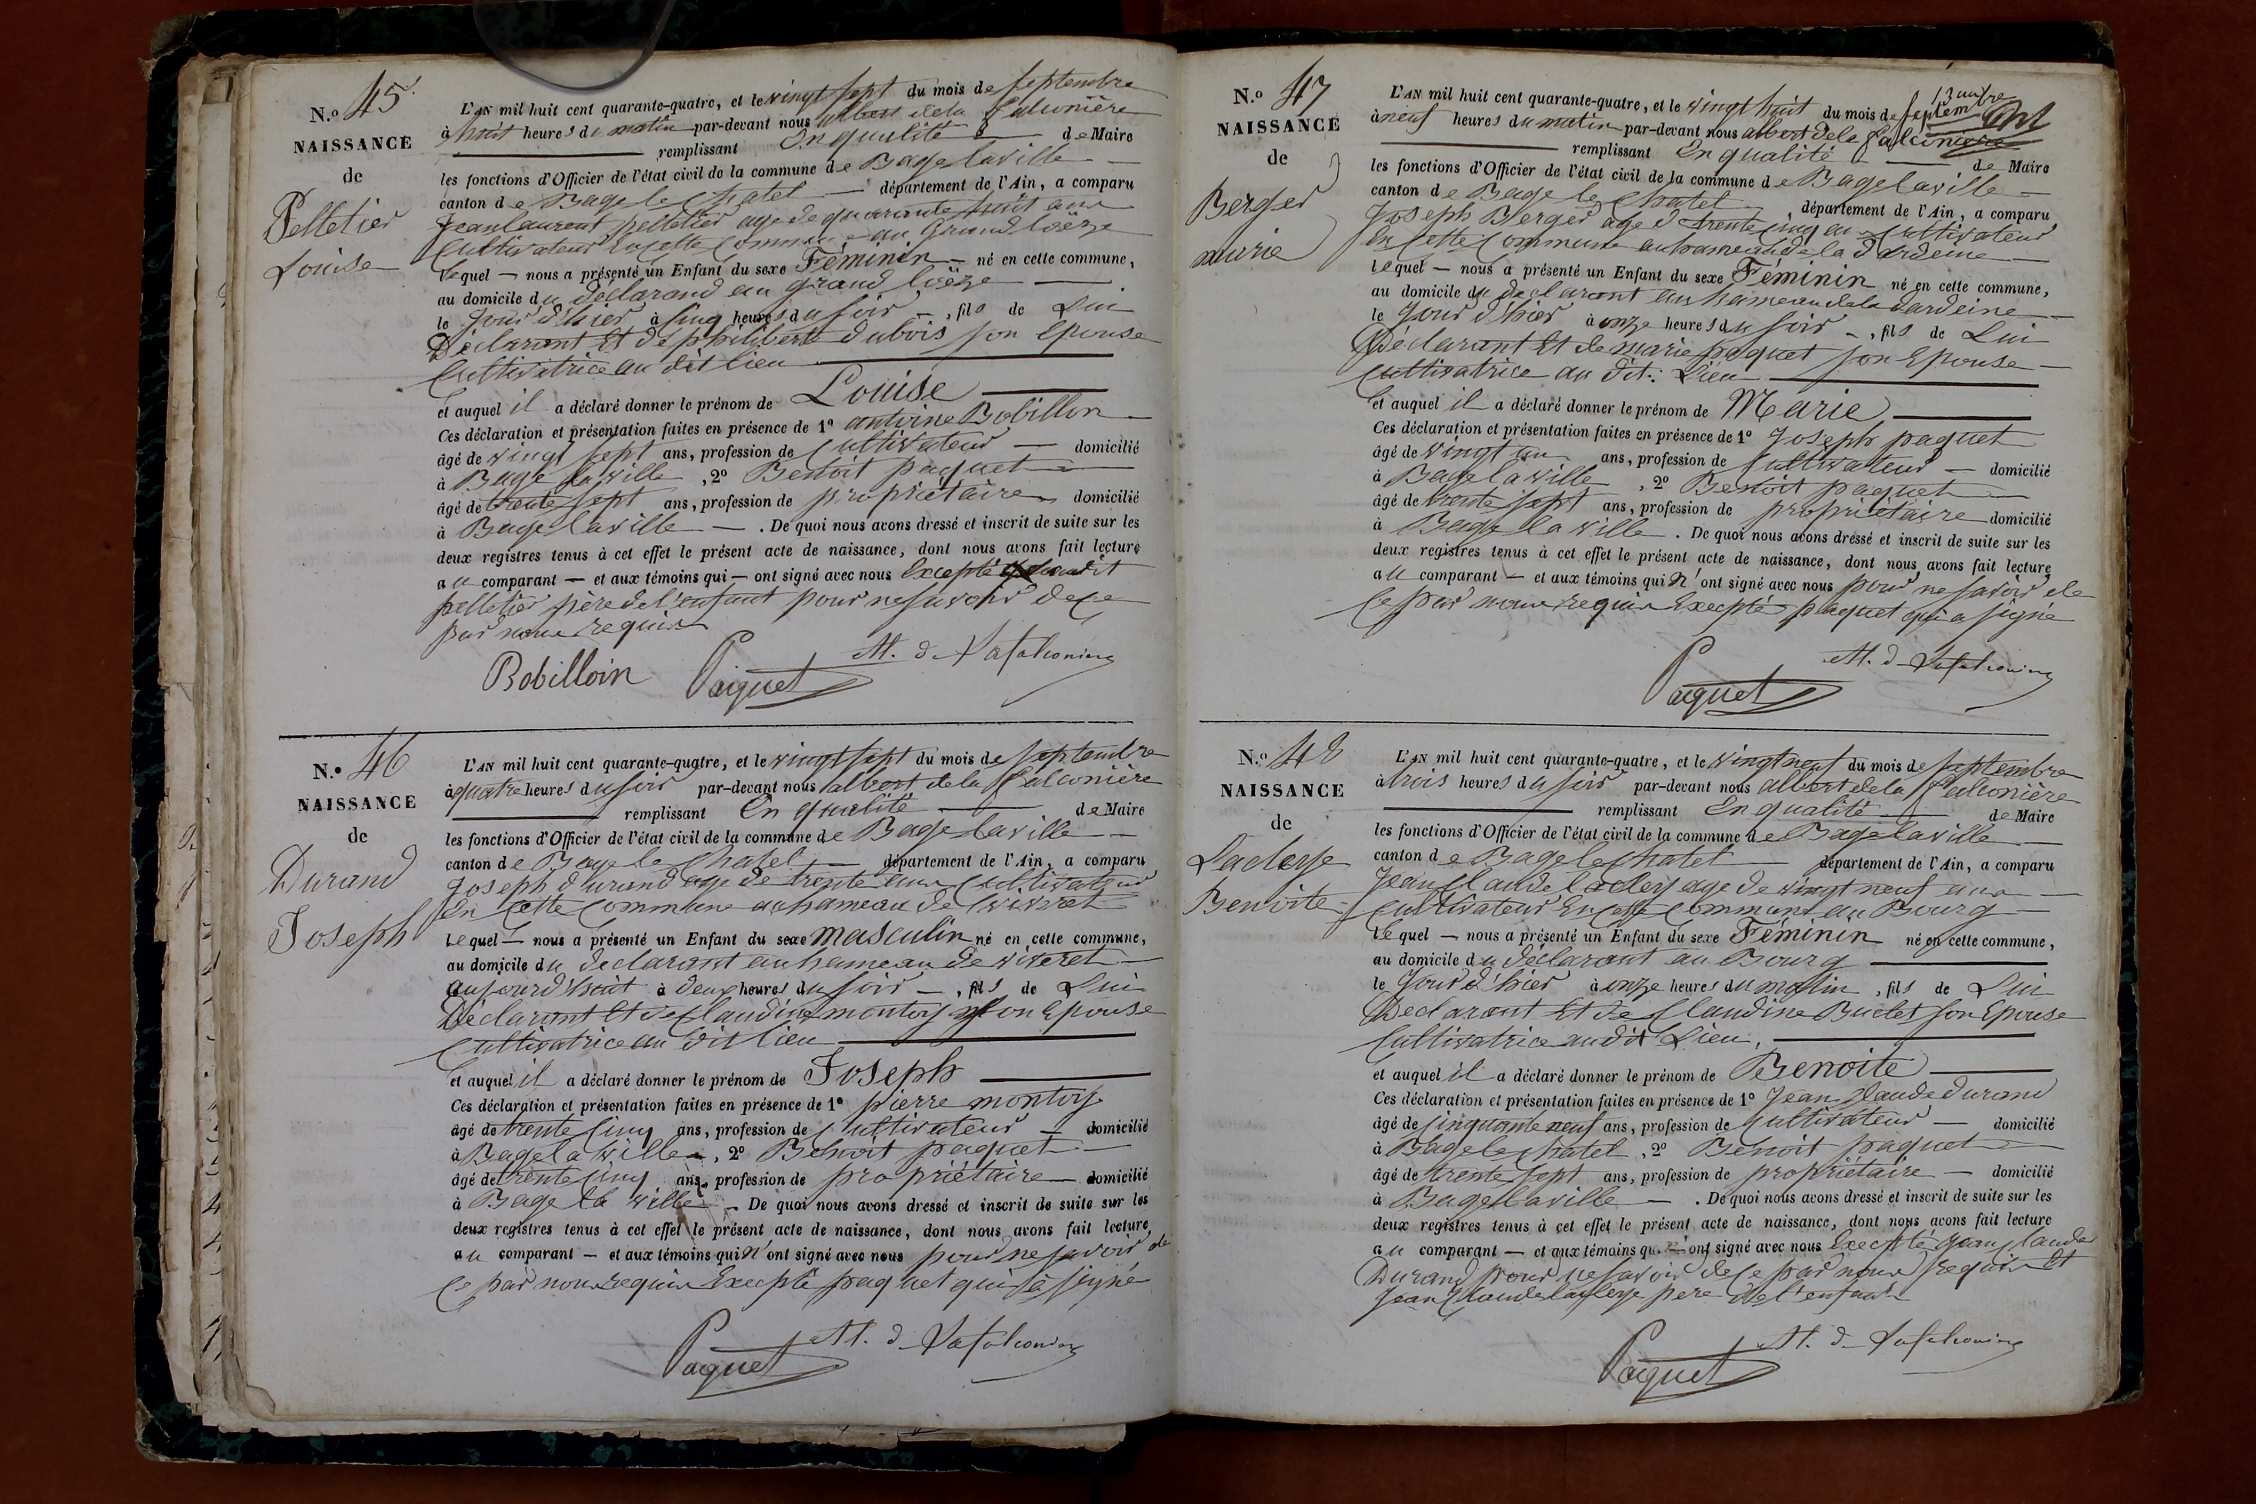 N.o 45
NAISSANCE
de
Pelletier
Louise
L'AN mil huit cent quarante-quatre, et le vingt sept du mois de septembre
à huit heures du matin par-devant nous albert dela Falconière
remplissant En qualité de Maire
les fonctions d'Officier de l'état civil de la commune de Bage laville
canton de Bage le Chatel département de l'Ain, a comparu
Jean laurent pelletier age de quarante huit ans
Cultivateur En cette Commune au grand loëze
lequel — nous a présenté un Enfant du sexe Féminin — né en cette commune,
au domicile du déclarand au grand loëze
le Jour d'hier à Cinq heures du soir —, fils de Lui
Déclarant Et de philiberte dubois son Epouse
Cultivatrice au dit lieu
et auquel il a déclaré donner le prénom de Louise
Ces déclaration et présentation faites en présence de 1o antoine Bobillon
âgé de vingt sept ans, profession de Cultivateur — domicilié
à Bage la ville, 2o Benoit paquet
âgé de trente sept ans, profession de propriétaire domicilié
à Bage laville — . De quoi nous avons dressé et inscrit de suite sur les
deux registres tenus à cet effet le présent acte de naissance, dont nous avons fait lecture
au comparant — et aux témoins qui — ont signé avec nous Excepté
pelletier père de l'enfant pour ne savoir de ce
par nous requis
Bobilloin Paquet
N.o 46
NAISSANCE
de
Durand
Joseph
L'AN mil huit cent quarante-quatre, et le vingt sept du mois de septembre
à quatre heures du soir par-devant nous albert de la Falconière
remplissant En qualité de Maire
les fonctions d'Officier de l'état civil de la commune de Bage laville
canton de Bage le Chatel — département de l'Ain, a comparu
Joseph durand age de trente ans Cultivateur
En Cette Commune au hameau de viveret
lequel — nous a présenté un Enfant du sexe masculin né en cette commune,
au domicile du declarant au hameau de viveret
aujourd'huit à deux heures du soir —, fils de Lui
Déclarant Et de Claudine montoy son Epouse
Cultivatrice au dit lieu
et auquel il a déclaré donner le prénom de Joseph
Ces déclaration et présentation faites en présence de 1o pierre montoy
âgé de trente Cinq ans, profession de Cultivateur — domicilié
à Bage la ville, 2o Benoit paquet
âgé de trente Cinq ans, profession de propriétaire — domicilié
à Bage la ville — De quoi nous avons dressé et inscrit de suite sur les
deux registres tenus à cet effet le présent acte de naissance, dont nous avons fait lecture
au comparant — et aux témoins qui N'ont signé avec nous pour ne savoir de
Ce par nous requis Excepté paquet qui a signé
Paquet
N.o 47
NAISSANCE
de
Berger
marie
L'AN mil huit cent quarante-quatre, et le vingt huit du mois de septembre
à neuf heures du matin par-devant nous albert de la Falconière
remplissant En qualité de Maire
les fonctions d'Officier de l'état civil de la commune de Bage laville
canton de Bage le Chatel, département de l'Ain, a comparu
Joseph Berger age de trente cinq ans Cultivateur
En Cette Commune au hameau de la dardeine
lequel — nous a présenté un Enfant du sexe Féminin né en cette commune,
au domicile du declarant au hameau de la dardeine
le Jour d'hier à onze heures du soir —, fils de Lui
Déclarant Et de marie paquet son Epouse
Cultivatrice au dit Lieu
et auquel il a déclaré donner le prénom de Marie
Ces déclaration et présentation faites en présence de 1o Joseph paquet
âgé de vingt un ans, profession de Cultivateur — domicilié
à Bage la ville, 2o Benoit paquet
âgé de trente sept ans, profession de propriétaire domicilié
à Bage la ville. De quoi nous avons dressé et inscrit de suite sur les
deux registres tenus à cet effet le présent acte de naissance, dont nous avons fait lecture
au comparant — et aux témoins qui N'ont signé avec nous pour ne savoir de
Ce par nous requis Excepté paquet qui a signé
Paquet
N.o 48
NAISSANCE
de
Benoite
L'AN mil huit cent quarante-quatre, et le vingt neuf du mois de septembre
à trois heures du soir par-devant nous albert de la Falconière
remplissant En qualité de Maire
les fonctions d'Officier de l'état civil de la commune de Bage laville
canton de Bage le Chatel département de l'Ain, a comparu
Jean Claude age de vingt neuf ans
Cultivateur En cette Commune au Bourg
lequel — nous a présenté un Enfant du sexe Féminin né en cette commune,
au domicile du déclarant au Bourg
le Jour d'hier à onze heures du matin, fils de Lui
Declarant Et de Claudine Buclet son Epouse
Cultivatrice au dit Lieu.
et auquel il a déclaré donner le prénom de Benoite
Ces déclaration et présentation faites en présence de 1o Jean Claude durand
âgé de Cinquante neuf ans, profession de Cultivateur — domicilié
à Bage le Chatel, 2o Benoit paquet
âgé de trente sept ans, profession de propriétaire — domicilié
à Bage laville — . De quoi nous avons dressé et inscrit de suite sur les
deux registres tenus à cet effet le présent acte de naissance, dont nous avons fait lecture
au comparant — et aux témoins qui ont signé avec nous Excepté Jean Claude
Durand pour ne savoir de Ce par nous requis Et
Jean Claude père de l'enfant
Paquet